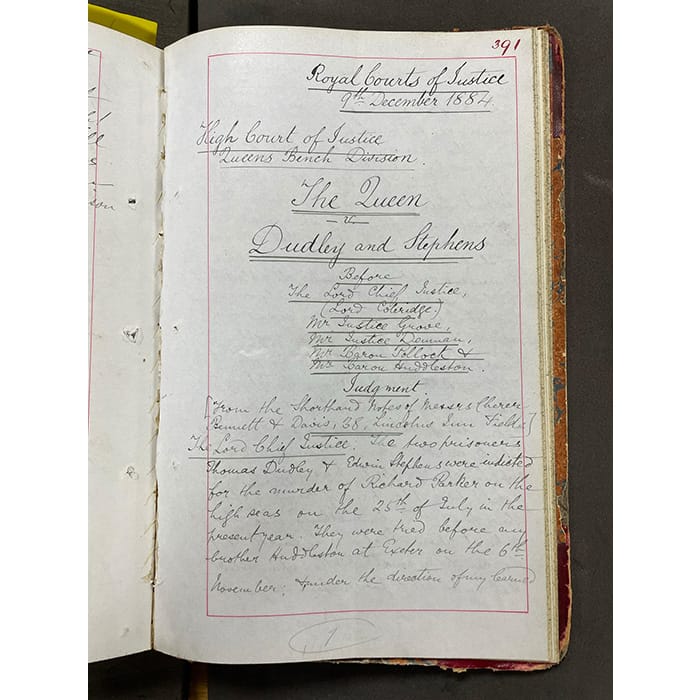 391
Royal Courts of Justice
9th December 1884.
High Court of Justice
Queens Bench Division.
The Queen
v.
Dudley and Stephens
Before
The Lord Chief Justice,
(Lord Coleridge)
Mr Justice Grove,
Mr Justice Denman,
Mr Baron Pollock &
Mr Baron Huddleston.
Judgment.
[From the Shorthand Notes of Messrs Cherer
Bennett & Davis, 38, Lincolns Inn Fields]
The Lord Chief Justice. The two prisoners
Thomas Dudley & Edwin Stephens were indicted
for the murder of Richard Parker on the
high seas on the 25th of July in the
present year. They were tried before my
brother Huddleston at Exeter on the 6th
November; & under the direction of my learned
1